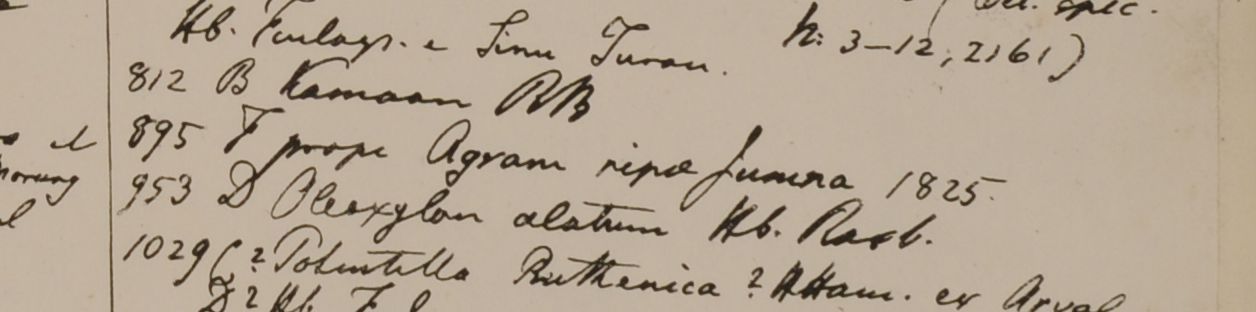 spec.
Hb. Finlays. e Sinu Turon. h: 3-12, 2161)
812 B Kamaon RB
895 F prope Agram ripæ Jumna 1825.
953 D Oleoxylon alatum Hb. Roxb.
1029 (? Potentilla Ruthenica ? HHam. ex
D? Hb.